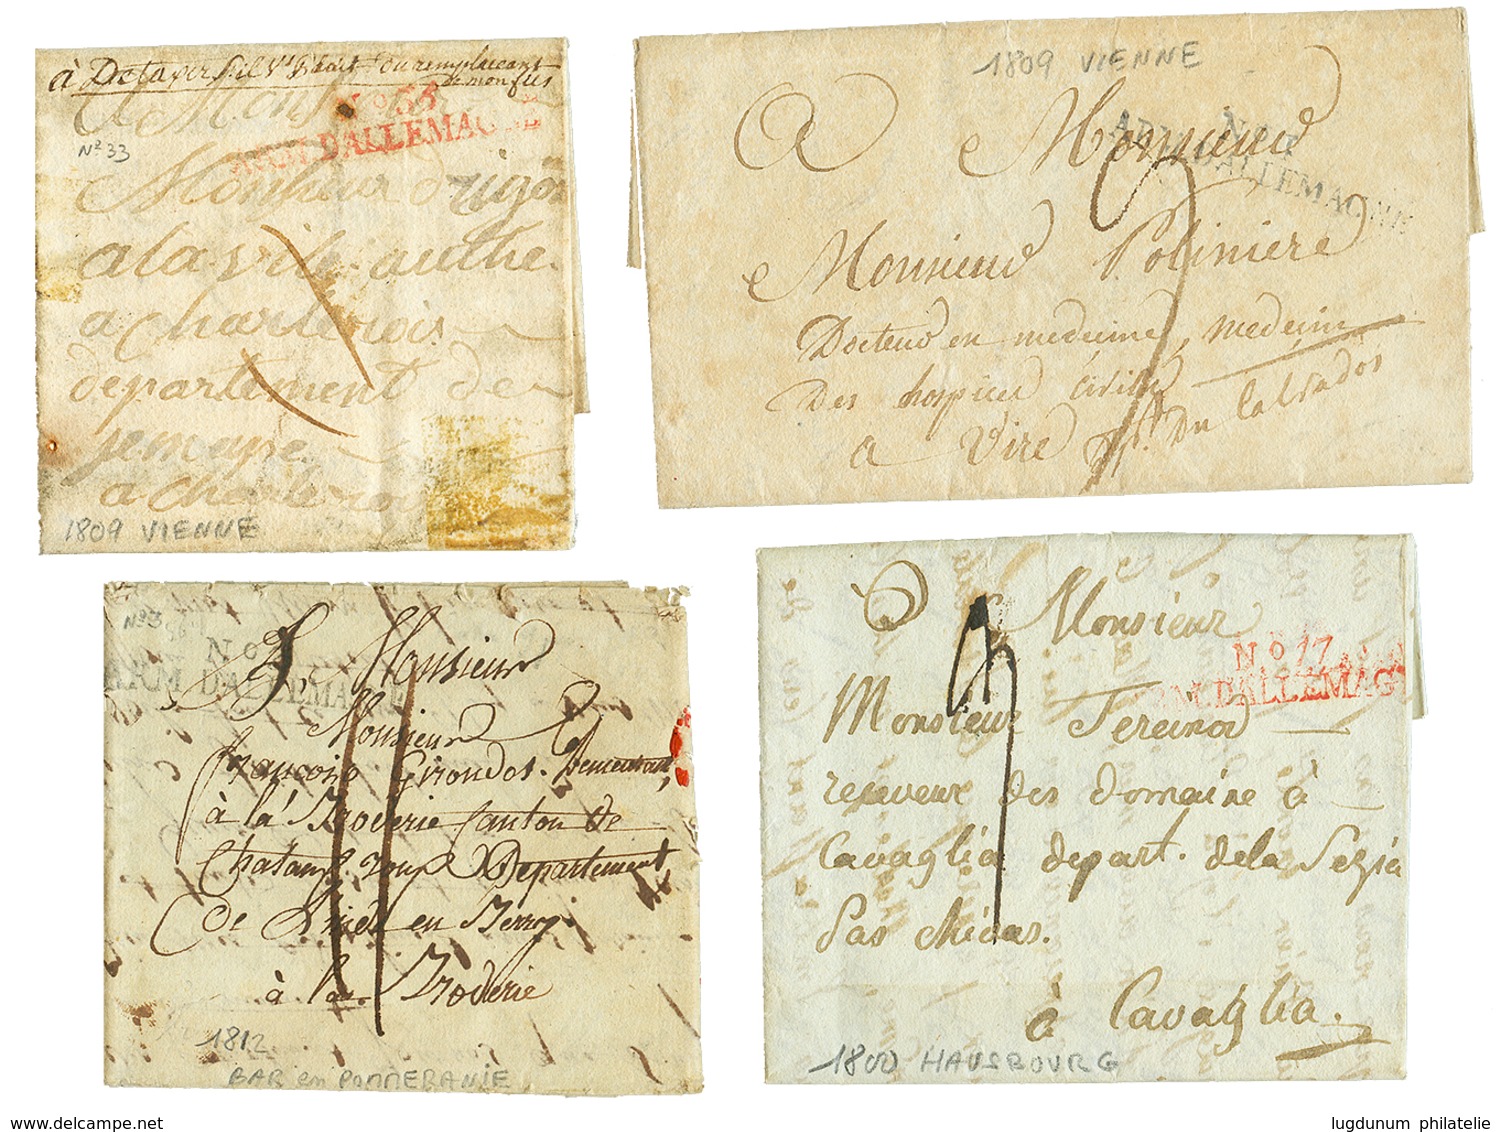 à Detaver s'il vs plait ou remplacant
de mon fils
A Mons
No 33
ARM D'ALLEMAGNE
Nº 33
Monsieur drigon
a la vile authe
a charlerois
departement de
jemape
a charleroy
1809 VIENNE
1809 VIENNE
A Monsieur
No
ARM D'ALLEMAGNE
Monsieur Polinière
Docteur en medecine, medecin
Des hospices Civils
a Vire Dt. Du Calvados
Nº 3
No
ARM D'ALLEMAGNE
A Monsieur
Monsieur
françois Girondos. Demeurant
à la Troderie Canton de
Departement
De en Berry
à la Troderie
1812
BAR en POMMERANIE
A Monsieur
No 17
ARM. D'ALLEMAG
Monsieur Tereina
reseveur des domaine à
Cavaglia depart. de la Sezia
Pas
à Cavaglia.
1809 HAUSBOURG
www.delcampe.net
lugdunum philatelie